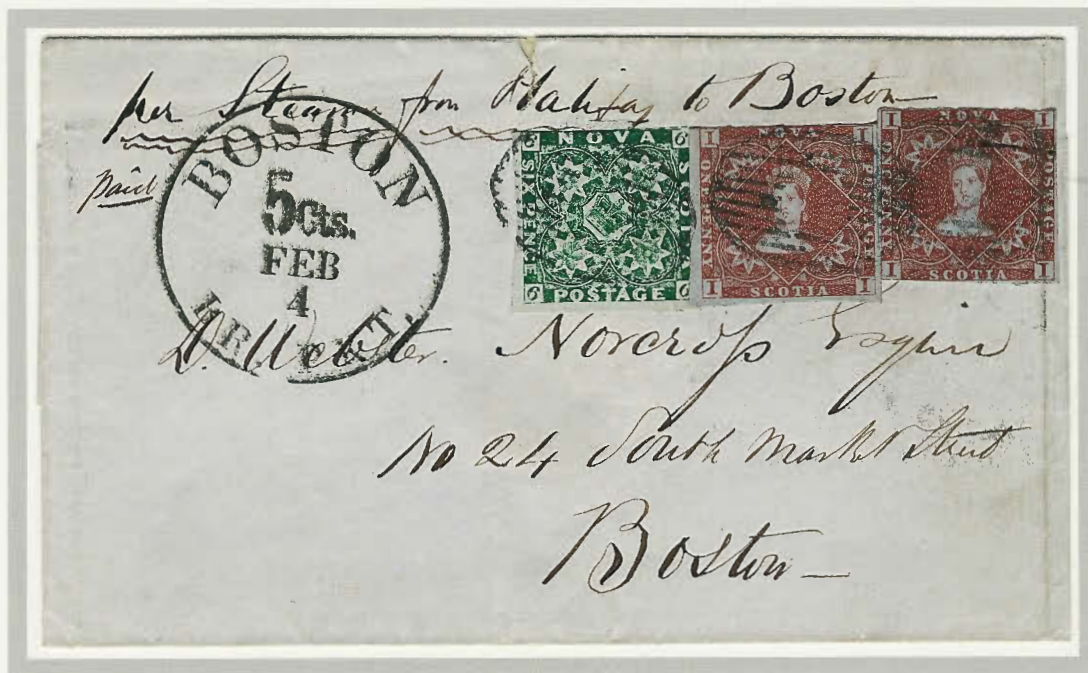 per Steamer from Halifax to Boston
paid
BOSTON
5 Cts.
FEB
4
BR. PKT.
6 NOVA 6
SIX PENCE
SCOTIA
6 POSTAGE 6
1 NOVA 1
ONE PENNY
POSTAGE
1 SCOTIA 1
1 NOVA 1
ONE PENNY
POSTAGE
1 SCOTIA 1
D. Webster. Norcross Esquire
No 24 South Market Street
Boston